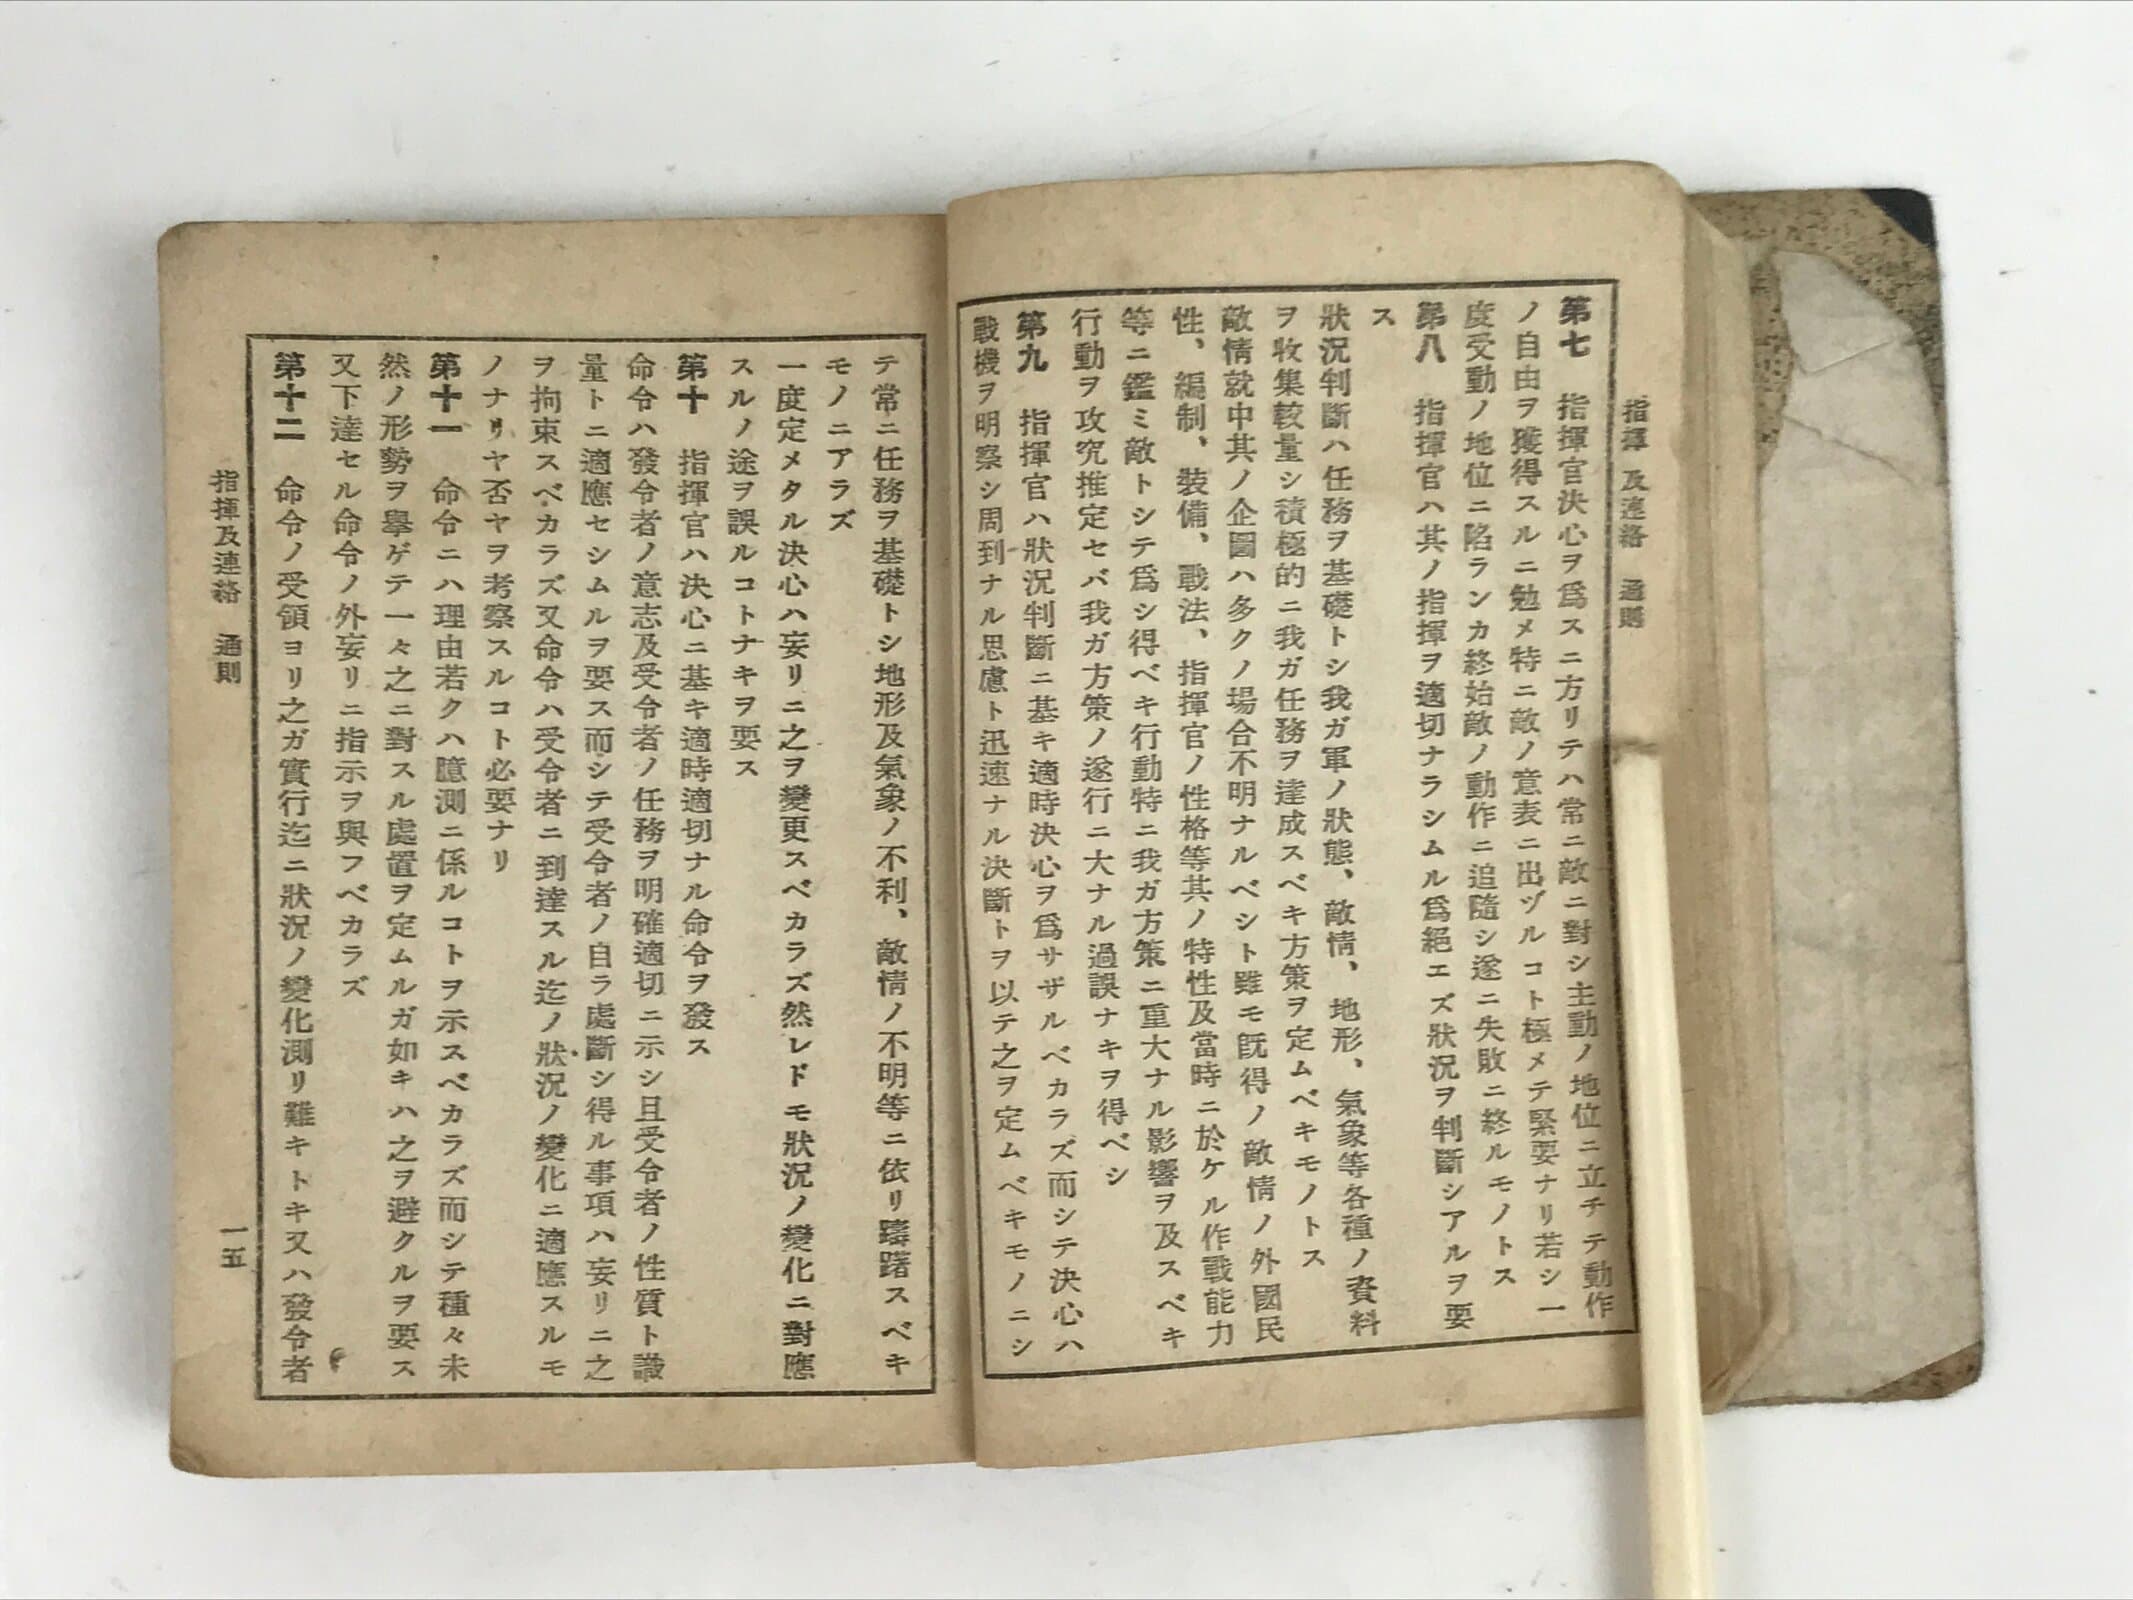 指揮及連絡　通則
第七　指揮官決心ヲ爲スニ方リテハ常ニ敵ニ對シ主動ノ地位ニ立チテ動作
ノ自由ヲ獲得スルニ勉メ特ニ敵ノ意表ニ出ヅルコト極メテ緊要ナリ若シ一
度受動ノ地位ニ陷ランカ終始敵ノ動作ニ追隨シ遂ニ失敗ニ終ルモノトス
第八　指揮官ハ其ノ指揮ヲ適切ナラシムル爲絕エズ狀況ヲ判斷シアルヲ要
ス
狀況判斷ハ任務ヲ基礎トシ我ガ軍ノ狀態、敵情、地形、氣象等各種ノ資料
ヲ收集較量シ積極的ニ我ガ任務ヲ達成スベキ方策ヲ定ムベキモノトス
敵情就中其ノ企圖ハ多クノ場合不明ナルベシト雖モ旣得ノ敵情ノ外國民
性、編制、裝備、戰法、指揮官ノ性格等其ノ特性及當時ニ於ケル作戰能力
等ニ鑑ミ敵トシテ爲シ得ベキ行動特ニ我ガ方策ニ重大ナル影響ヲ及スベキ
行動ヲ攻究推定セバ我ガ方策ノ遂行ニ大ナル過誤ナキヲ得ベシ
第九　指揮官ハ狀況判斷ニ基キ適時決心ヲ爲サザルベカラズ而シテ決心ハ
戰機ヲ明察シ周到ナル思慮ト迅速ナル決斷トヲ以テ之ヲ定ムベキモノニシ
テ常ニ任務ヲ基礎トシ地形及氣象ノ不利、敵情ノ不明等ニ依リ躊躇スベキ
モノニアラズ
一度定メタル決心ハ妄リニ之ヲ變更スベカラズ然レドモ狀況ノ變化ニ對應
スルノ途ヲ誤ルコトナキヲ要ス
第十　指揮官ハ決心ニ基キ適時適切ナル命令ヲ發ス
命令ハ發令者ノ意志及受令者ノ任務ヲ明確適切ニ示シ且受令者ノ性質ト識
量トニ適應セシムルヲ要ス而シテ受令者ノ自ラ處斷シ得ル事項ハ妄リニ之
ヲ拘束スベカラズ又命令ハ受令者ニ到達スル迄ノ狀況ノ變化ニ適應スルモ
ノナリヤ否ヤヲ考察スルコト必要ナリ
第十一　命令ニハ理由若クハ臆測ニ係ルコトヲ示スベカラズ而シテ種々未
然ノ形勢ヲ擧ゲテ一々之ニ對スル處置ヲ定ムルガ如キハ之ヲ避クルヲ要ス
又下達セル命令ノ外妄リニ指示ヲ與フベカラズ
第十二　命令ノ受領ヨリ之ガ實行迄ニ狀況ノ變化測リ難キトキ又ハ發令者
指揮及連絡　通則
一五